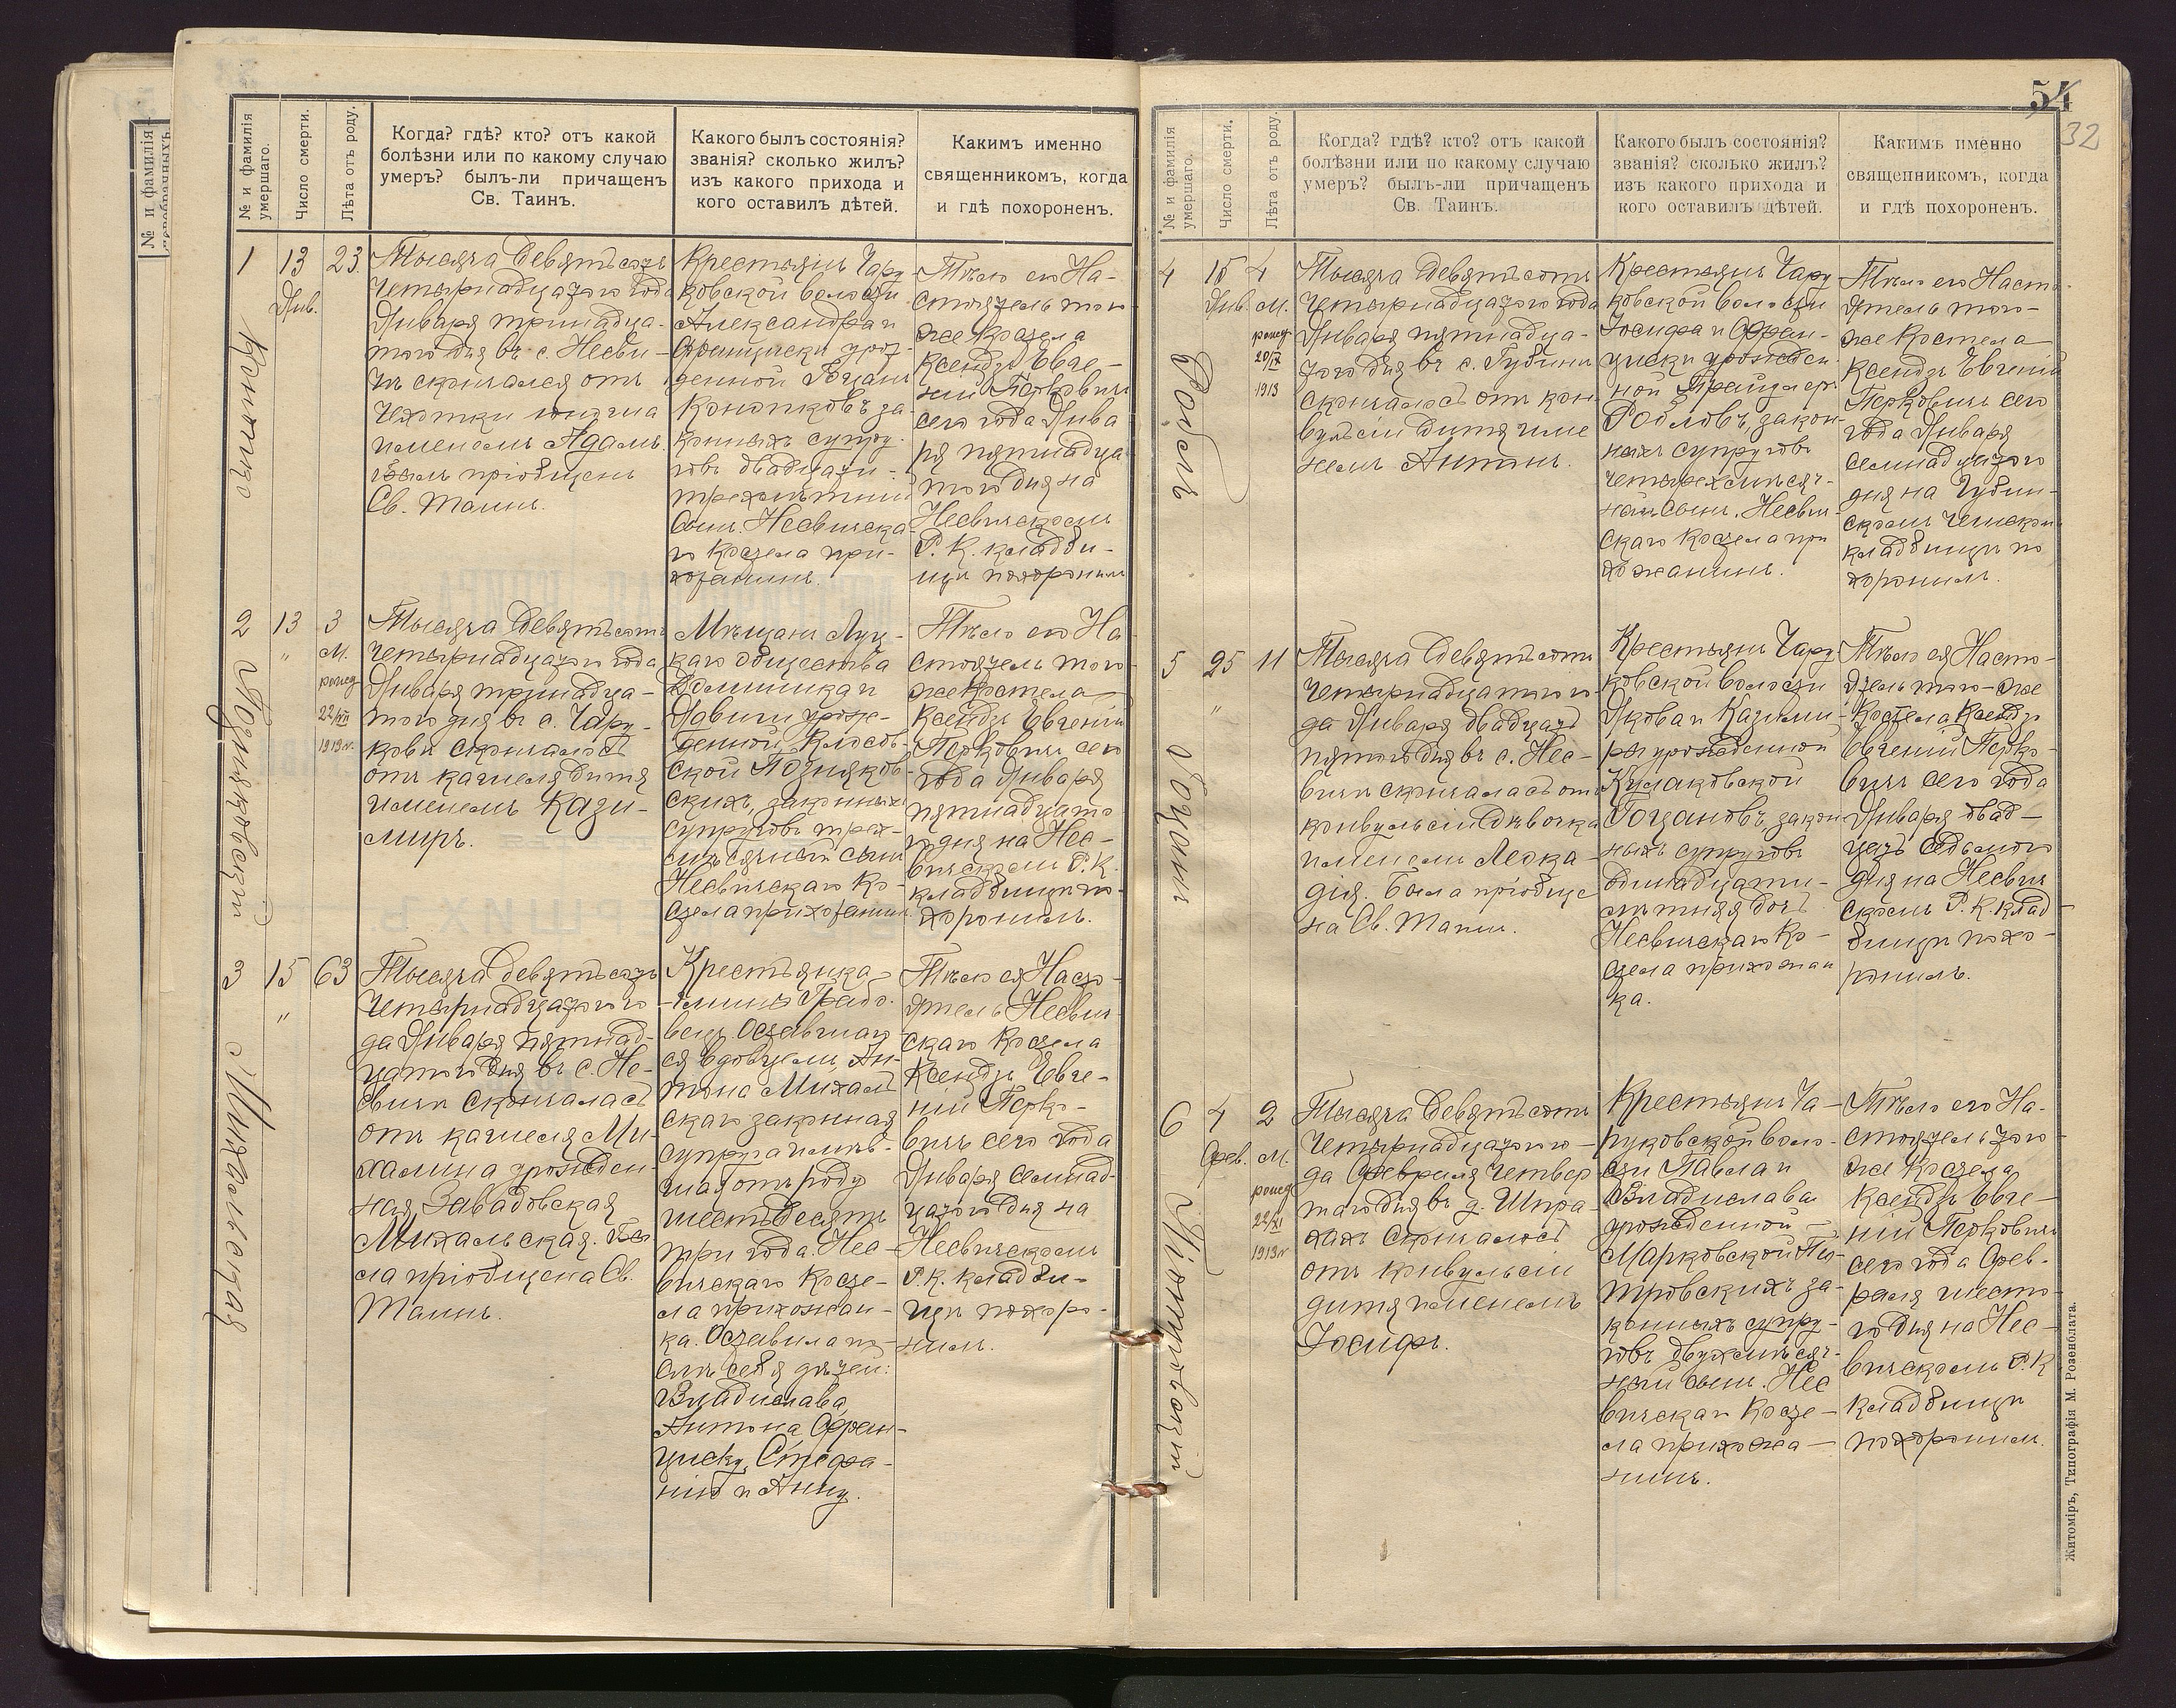 № и фамилія умершаго.
Число смерти.
Лѣта отъ роду.
Когда? гдѣ? кто? отъ какой
болѣзни или по какому случаю
умеръ? былъ-ли причащенъ
Св. Таинъ.
Какого былъ состоянія?
званія? сколько жилъ?
изъ какого прихода и
кого оставилъ дѣтей.
Какимъ именно
священникомъ, когда
и гдѣ похороненъ.
1
13
Янв.
23.
Тысяча девятьсотъ
четырнадцатого года
Января тринадца-
того дня въ с. Несви-
чъ скончался отъ
чахотки юноша
именемъ Адамъ.
былъ пріобщенъ
Св. Таинъ.
Крестьянъ Чару-
ковской волости
Александра и
Францишки урож-
денной
законныхъ супру-
говъ двадцати-
трехлѣтній
сынъ. Несвичска-
го Костела при-
хожанинъ.
Тѣло его На-
стоятель того-
же Костела
Ксендзъ Евге-
ній Перковичъ
сего года Янва
ря пятнадца
того дня на
Несвичскомъ
Р. К. кладби-
щѣ похоронилъ
2
13
"
3
м.
рожд.
22/
Позняковскій
Тысяча девятьсотъ
четырнадцатого года
Января тринадца-
того дня въ с. Чару-
ковѣ скончалось
отъ кашеля дитя
именемъ Кази-
миръ.
Мѣщанъ Луц-
каго общества
Доминика и
урож-
денной
ской Позняков-
скихъ, законныхъ
супруговъ трех-
мѣсячный сынъ
Несвичскаго Ко-
стела прихожанинъ.
Тѣло его На
стоятель того-
же Костела
Ксендзъ Евгеній
Перковичъ сего
года Января
пятнадцато
го дня на Нес-
вичскомъ Р. К.
кладбищѣ по-
хоронилъ.
3
15
"
63
Михальская
Тысяча девятьсотъ
четырнадцатого го
да Января пятнад-
цатого дня въ с. Не-
свичъ скончалась
отъ кашеля Ми-
халина урожден-
ная Завадовская
Михальская. Бы
ла пріобщена Св.
Таинъ.
Крестьянка
вец. Оставшаго
ся вдовцемъ, Ан-
тона Михаль
скаго законная
супруга имѣв-
шая отъ роду
шестьдесятъ
три года. Нес-
вичскаго Косте-
ла прихожан-
ка. Оставила по-
слѣ себя дѣтей:
Владислава,
Антона, Фран-
циску, Стефа-
нію и Анну.
Тѣло ея Насто-
ятель Несвич-
скаго Костела
Ксендзъ Евге-
ній Перко-
вичъ сего года
Января семнад-
цатого дня на
Несвичскомъ
Р. К. кладби-
щѣ похоро-
нилъ.
54
32
№ и фамилія умершаго.
Число смерти.
Лѣта отъ роду.
Когда? гдѣ? кто? отъ какой
болѣзни или по какому случаю
умеръ? былъ-ли причащенъ
Св. Таинъ.
Какого былъ состоянія?
званія? сколько жилъ?
изъ какого прихода и
кого оставилъ дѣтей.
Какимъ именно
священникомъ, когда
и гдѣ похороненъ.
4
15
Янв.
4
м.
рожд
20/IX
1913
Тысяча девятьсотъ
четырнадцатого года
Января пятнадца-
того дня въ с. Губинѣ
скончалось отъ кон-
вульсіи дитя име
немъ Антонъ.
Крестьянъ Чару
ковской волости
Іосифа и Фран-
циски урожден
ной
закон-
ныхъ супруговъ
четырехмѣсяч-
ный сынъ. Несвич-
скаго Костела при
хожанинъ.
Тѣло его Насто-
ятель того-
же Костела
Ксендзъ Евгеній
Перковичъ сего
года Января
семнадцатого
дня на Губин-
скомъ чешском
кладбищѣ по
хоронилъ.
5
25
"
11
Тысяча девятьсотъ
четырнадцатого го-
да Января двадцать
пятого дня въ с. Нес-
вичъ скончалась отъ
конвульсіи дѣвочка
именемъ Леока-
дія. Была пріобще
на Св. Таинъ.
Крестьянъ Чару
ковской волости
Якова и Казими-
ры урожденной
Кулаковской
закон
ныхъ супруговъ
одинадцати-
лѣтняя дочь
Несвичскаго Ко-
стела прихожан
ка.
Тѣло ея Насто-
ятель того-же
Костела Ксендзъ
Евгеній Перко-
вичъ сего года
Января двад-
цать седьмого
дня на Несвич
скомъ Р. К. клад-
бищѣ похо-
ронилъ.
6
4
Фев.
2
м.
рожд
22/XI
1913 г
Піотровскій
Тысяча девятьсотъ
четырнадцатого го-
да Февраля четвер
таго дня въ д. Шпра-
хахъ скончалось
отъ конвульсіи
дитя именемъ
Іосифъ.
Крестьянъ Ча-
руковской воло-
сти Павла и
Владиславы
урожденной
Марковской Піо-
тровскихъ за-
конныхъ супру-
говъ двухмѣсяч-
ный сынъ. Нес
вичскаго Косте-
ла прихожа-
нинъ.
Тѣло его На-
стоятель того-
же Костела
Ксендзъ Евге-
ній Перковичъ
сего года Фев-
раля шесто-
го дня на Нес-
вичскомъ Р. К
кладбищѣ
похоронилъ.
Житоміръ, Типографія М. Розенблата.